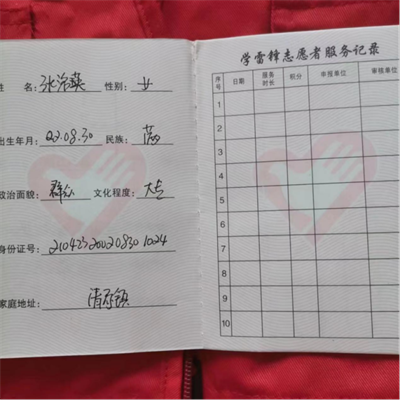 姓 名：张 性别：女
出生年月：02.08.30 民族：满
政治面貌：群众 文化程度：大专
身份证号：210423200208301024
家庭地址：清原镇
学雷锋志愿者服务记录
序号 日期 服务时长 积分 申报单位 审核单位
1
2
3
4
5
6
7
8
9
10